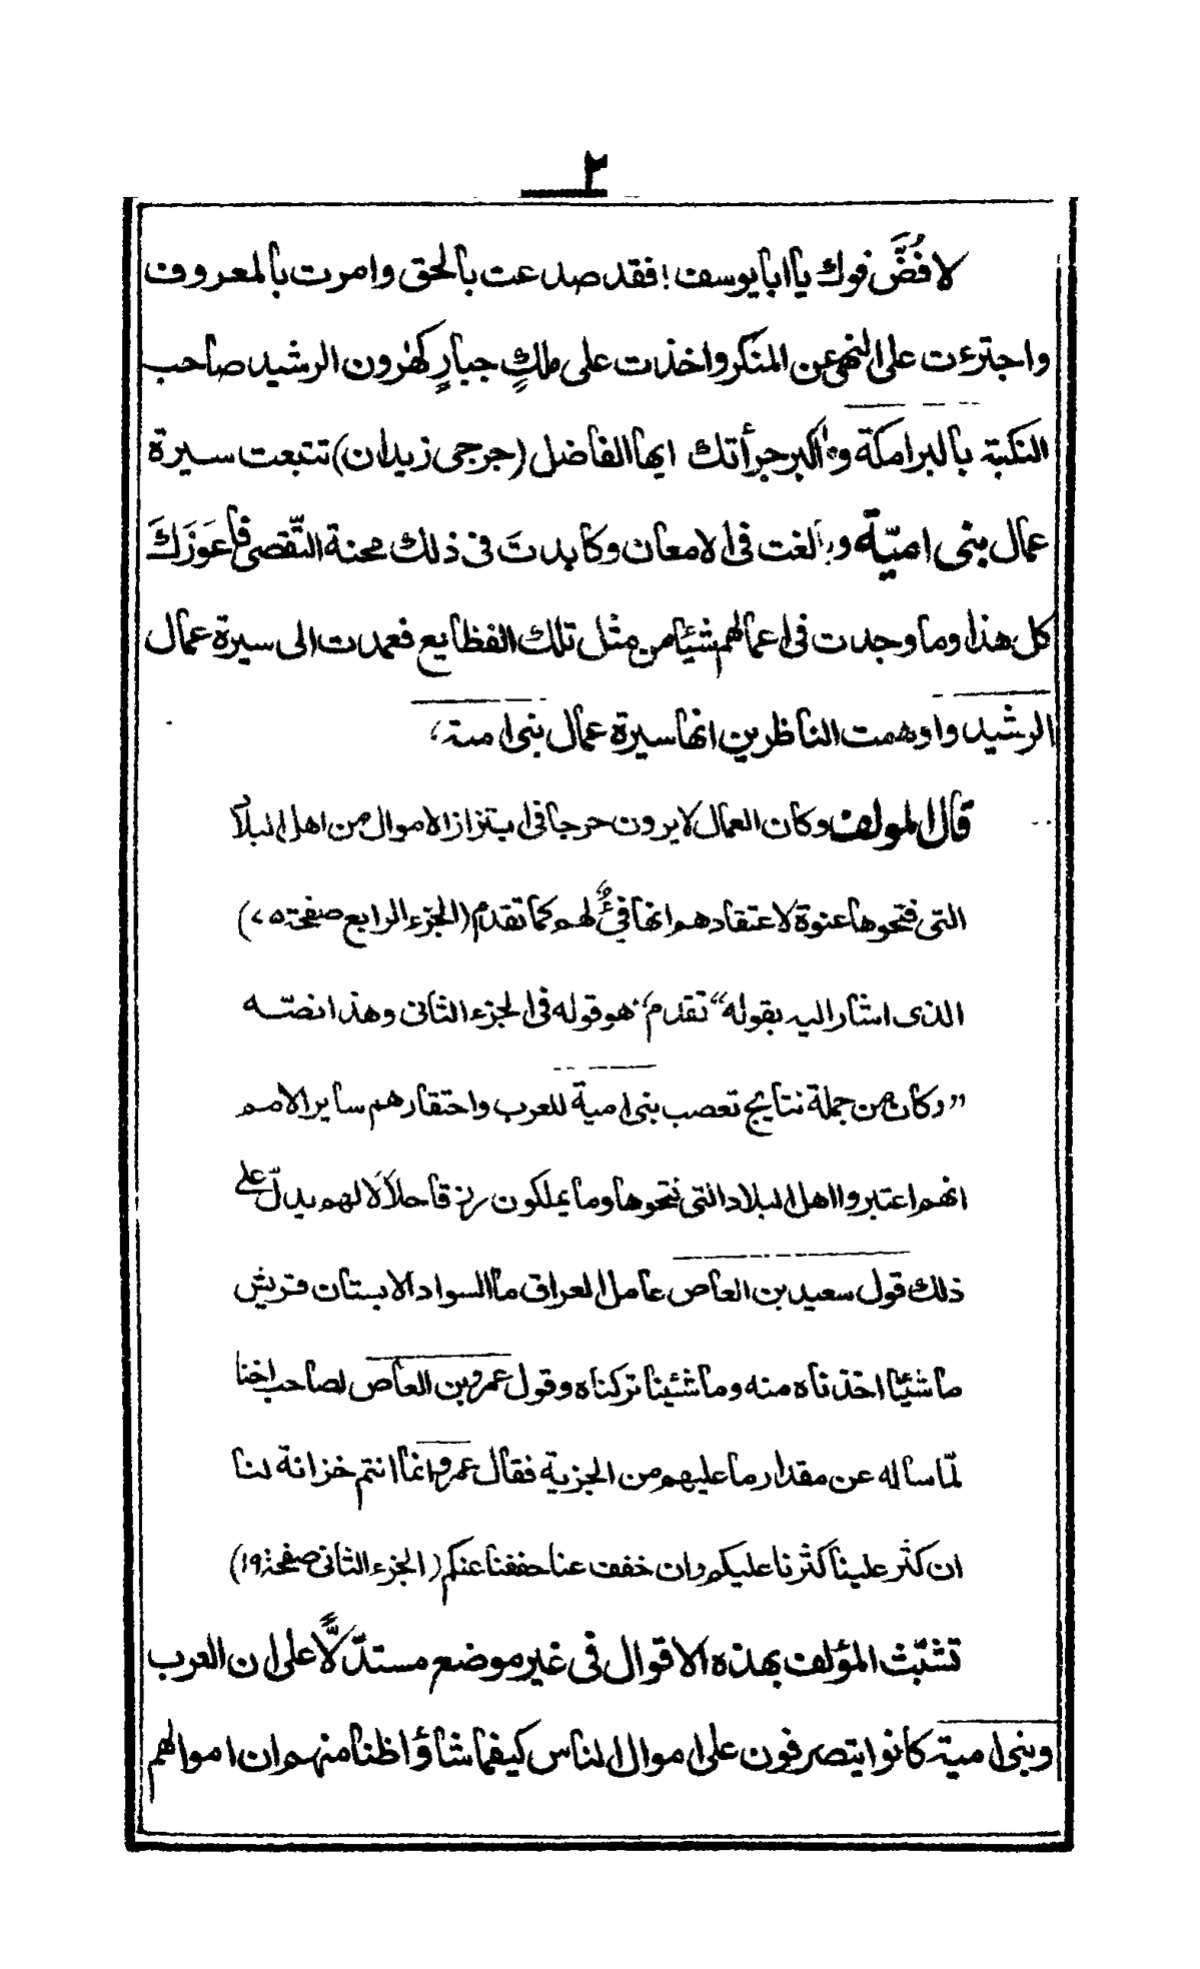 ٢
لا فُضَّ فوك يا ابا يوسف! فقد صدعت بالحق وامرت بالمعروف
واجترءت على النهى عن المنكر واخذت على ملكٍ جبارٍ كهٰرون الرشيد صاحب
النكبة بالبرامكة وما اكبر جرأتك ايها الفاضل (جرجى زيدان) تتبعت سيرة
عمال بنى اميّة وبالغت فى الامعان وكابدتَ فى ذلك محنة التّقصى فاَعوَزَكَ
كل هذا وما وجدت فى اعمالهم شيئا من مثل تلك الفظايع فعمدت الى سيرة عمال
الرشيد واوهمت الناظرين انها سيرة عمال بنى امية،
قال المولف وكان العمال لا يرون حرجا فى ابتزاز الاموال من اهل البلاد
التى فتحوها عنوة لاعتقادهم انها فيءٌ لهم كما تقدم (الجزء الرابع صفحة ٧٥)
الذى اشار اليه بقوله “تقدم” هو قوله فى الجزء الثانى وهذا نصّه
”وكان من جملة نتايج تعصب بنى امية للعرب واحتقارهم ساير الامم
انهم اعتبروا اهل البلاد التى فتحوها وما يملكون رزقا حلالًا لهم يدلّ على
ذلك قول سعيد بن العاص عامل العراق ما السواد الا بستان قريش
ما شئنا اخذناه منه وما شئينا تركناه وقول عمرو بن العاص لصاحب اخنا
لمّا ساله عن مقدار ما عليهم من الجزية فقال عمرو انما انتم خزانة لنا
ان كثر علينا كثرنا عليكم وان خفف عنا خففنا عنكم (الجزء الثانى صفحة ١٩)
تشبّث المؤلف بهذه الاقوال فى غير موضع مستدلًّا على ان العرب
وبنى امية كانوا يتصرفون على اموال الناس كيفما شاؤا ظنا منهم ان اموالهم